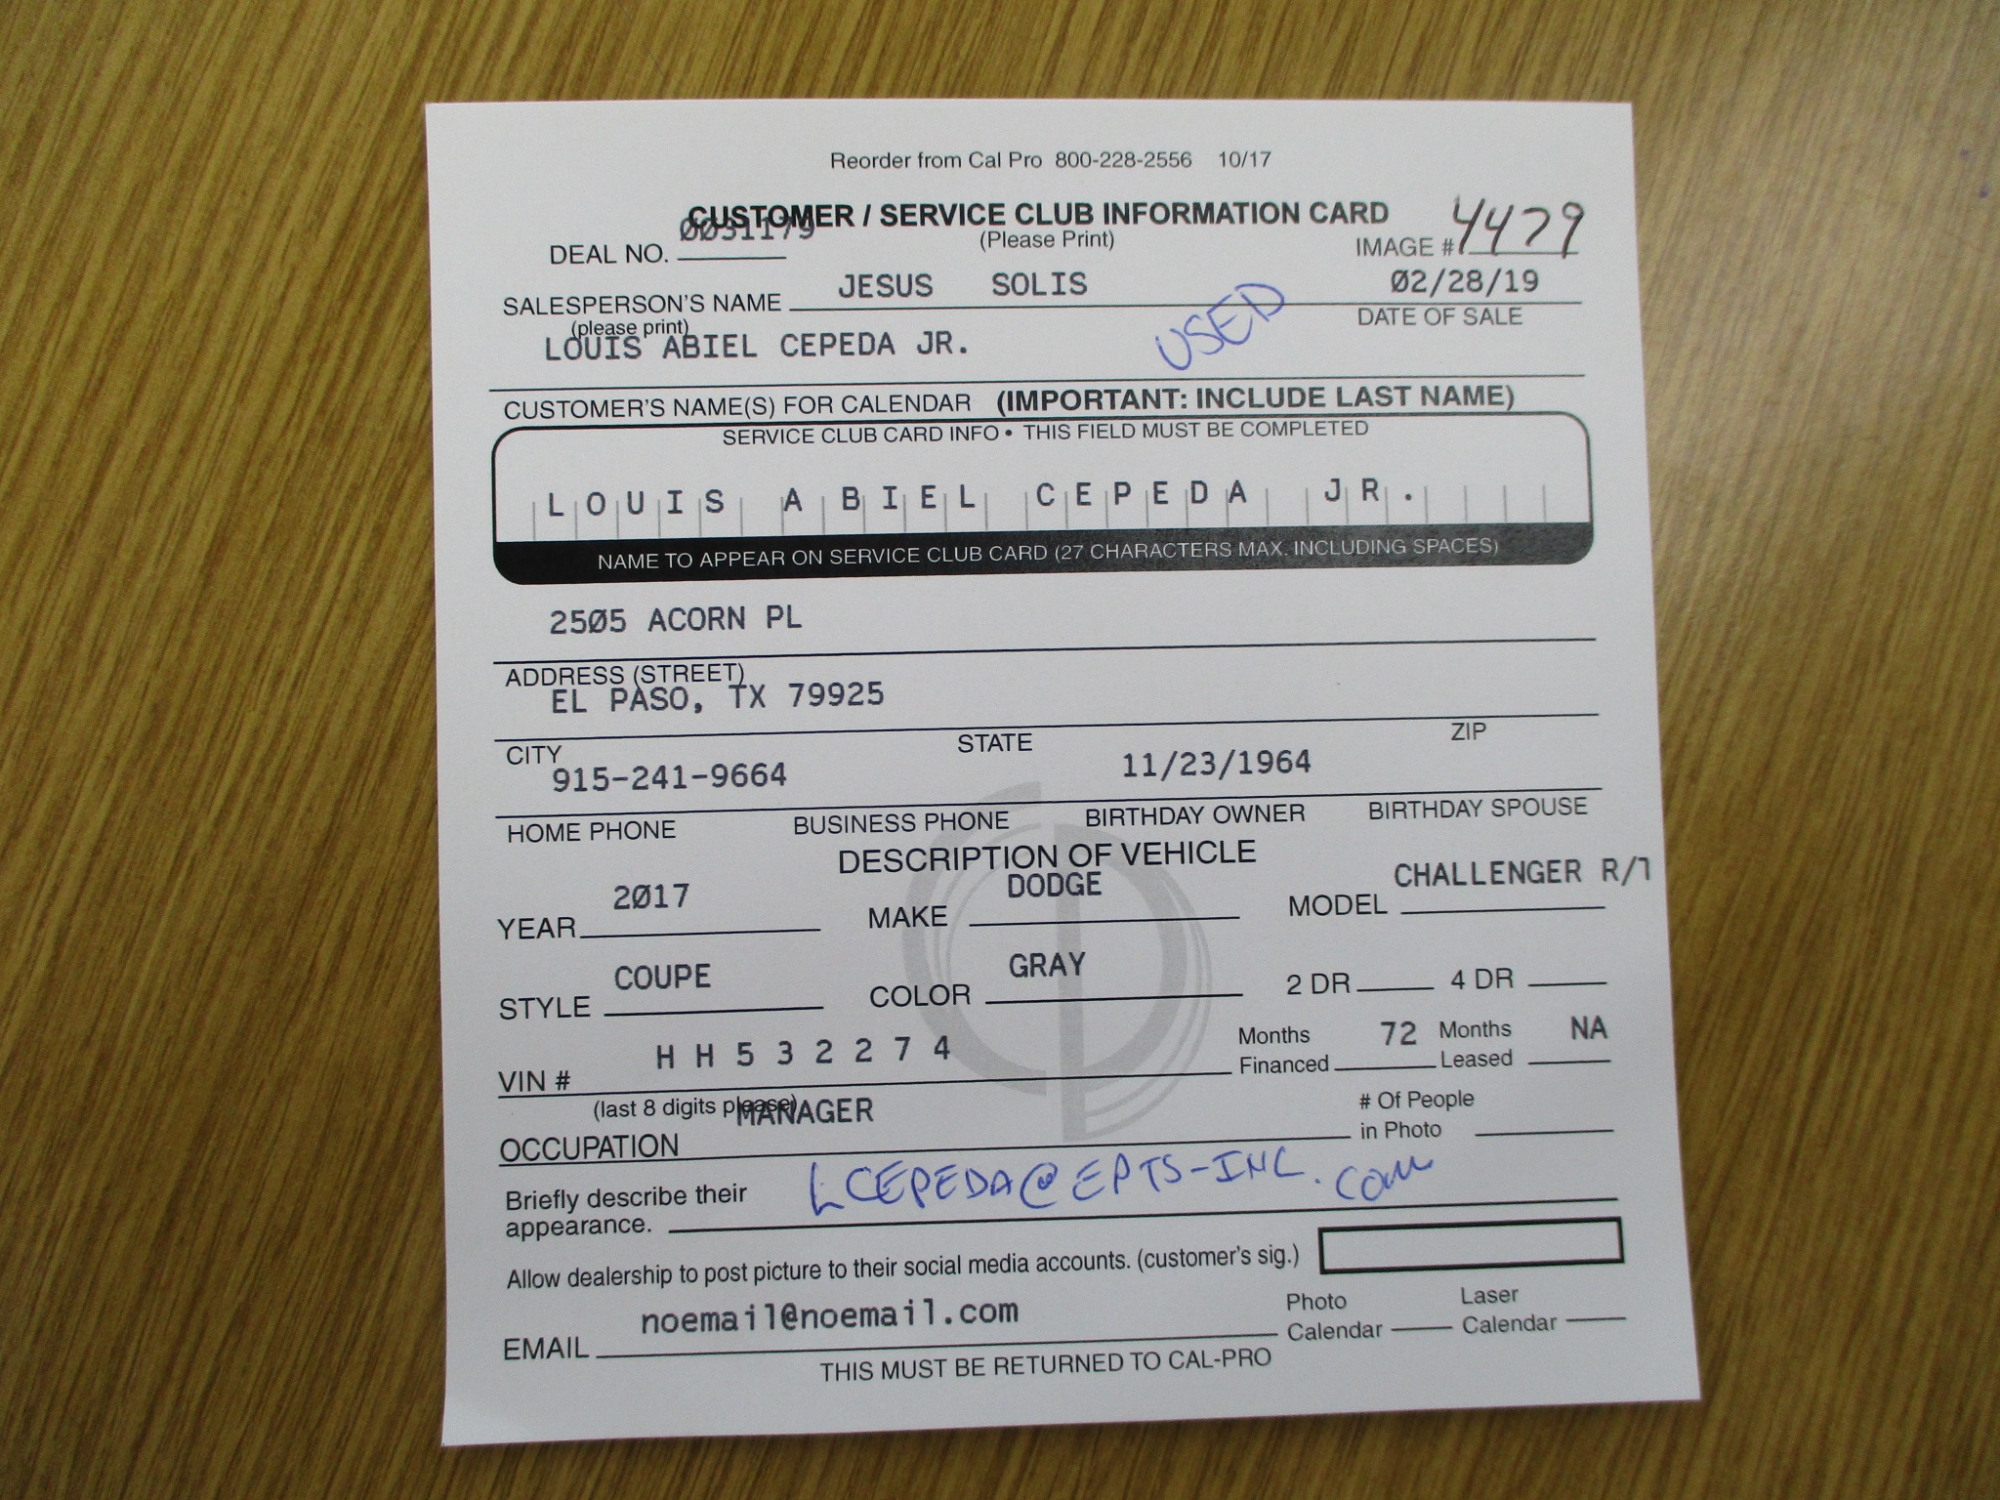 Reorder from Cal Pro 800-228-2556 10/17
CUSTOMER / SERVICE CLUB INFORMATION CARD
DEAL NO. 0031179 (Please Print) IMAGE # 4479
SALESPERSON'S NAME JESUS SOLIS 02/28/19
(please print) USED DATE OF SALE
LOUIS ABIEL CEPEDA JR.
CUSTOMER'S NAME(S) FOR CALENDAR (IMPORTANT: INCLUDE LAST NAME)
SERVICE CLUB CARD INFO • THIS FIELD MUST BE COMPLETED
LOUIS ABIEL CEPEDA JR.
NAME TO APPEAR ON SERVICE CLUB CARD (27 CHARACTERS MAX. INCLUDING SPACES)
2505 ACORN PL
ADDRESS (STREET)
EL PASO, TX 79925
CITY STATE ZIP
915-241-9664 11/23/1964
HOME PHONE BUSINESS PHONE BIRTHDAY OWNER BIRTHDAY SPOUSE
DESCRIPTION OF VEHICLE
YEAR 2017 MAKE DODGE MODEL CHALLENGER R/T
STYLE COUPE COLOR GRAY 2 DR 4 DR
VIN # HH532274 Months Financed 72 Months Leased NA
(last 8 digits please)
OCCUPATION MANAGER # Of People in Photo
Briefly describe their appearance. LCEPEDA@EPTS-INC.com
Allow dealership to post picture to their social media accounts. (customer's sig.)
EMAIL noemail@noemail.com Photo Calendar Laser Calendar
THIS MUST BE RETURNED TO CAL-PRO